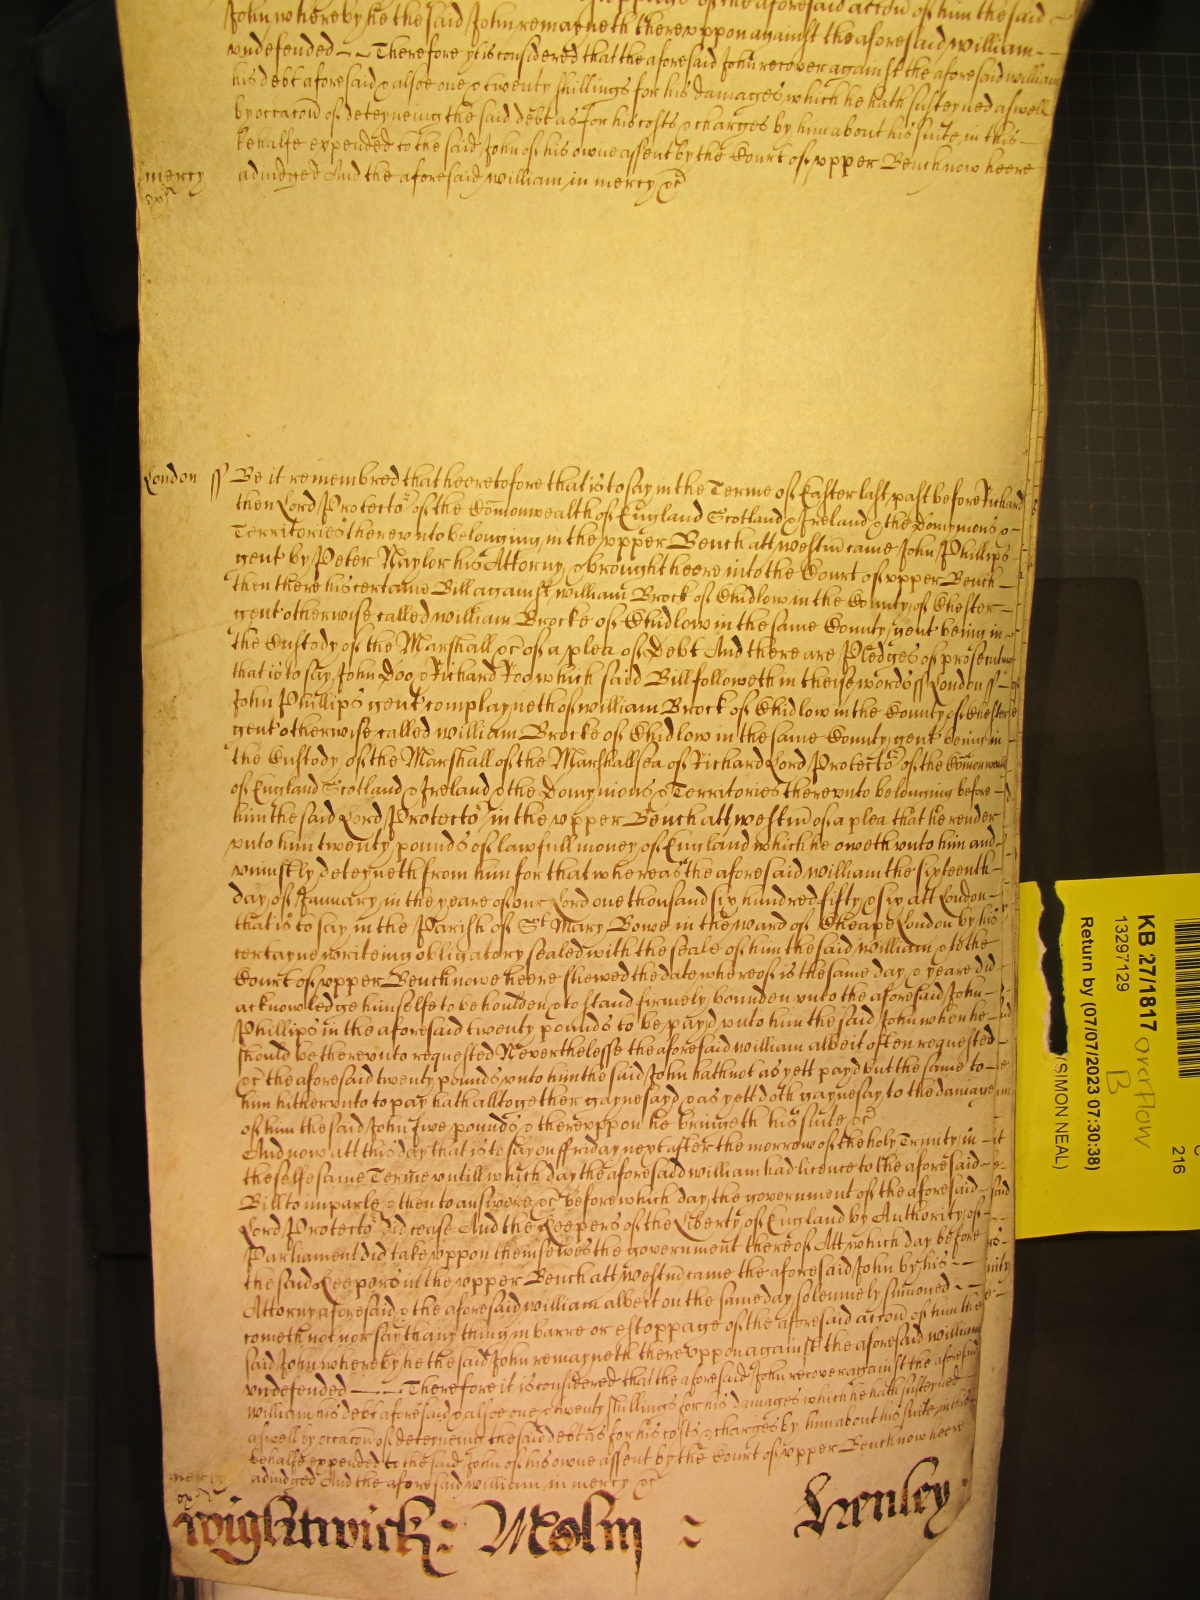 of the aforesaid accõn of him the said
John whereby he the said John remayneth thereuppon against the aforesaid William
undefended Therefore yt is considered that the aforesaid John recover against the aforesaid William
his debt aforesaid & alsoe one & twenty shillings for his damages which he hath susteyned aswell
by occacõn of deteyneing the said debt as for his costs & charges by him about his suite in this
behalfe expended to the said John of his owne assent by the Court of upper Bench now heere
mercy adiudged And the aforesaid William in mercy &c̃
London ss Be it remembred that heeretofore that is to say in the Terme of Easter last past before Richard
then Lord Protector of the Com̃onwealth of England Scotland & Ireland & the Domynions &
Territories thereunto belonging in the upper Bench att Westm̃ came John Phillips
gent by Peter Naylor his Attorny & brought heere into the Court of upper Bench
then there his certaine Bill against William Brock of Chidlow in the County of Chester
gent otherwise called William Brocke of Chidlow in the same County gent being in
the Custody of the Marshall &c̃ of a plea of Debt And there are Pledges of prosecuting
that is to say John Doo & Richard Roo which said Bill followeth in theise words ss London ss
John Phillips gent complayneth of William Brock of Chidlow in the County of Chester
gent otherwise called William Brocke of Chidlow in the same County gent being in
the Custody of the Marshall of the Marshallsea of Richard Lord Protector of the Com̃onwealth
of England Scotland & Ireland & the Domynions & Territories thereunto belonging before
him the said Lord Protector in the upper Bench att Westm̃ of a plea that he render
unto him twenty pounds of lawfull money of England which he oweth unto him and
uniustly deteyneth from him for that whereas the aforesaid William the sixteenth
day of January in the yeare of our Lord one thousand six hundred fifty & six att London
that is to say in the Parish of St Mary Bowe in the ward of Cheape London by his
certayne writeing obligatory sealed with the seale of him the said William & to the
Court of upper Bench now heere shewed the date whereof is the same day & yeare did
acknowledge himselfe to be houlden & to stand firmely bounden unto the aforesaid John
Phillips in the aforesaid twenty pounds to be payd unto him the said John when he
should be thereunto requested Neverthelesse the aforesaid William albeit often requested
&c̃ the aforesaid twenty pounds unto him the said John hath not as yett payd but the same to
him hitherunto to pay hath alltogether gaynesayd & as yett doth gaynesay to the damage
of him the said John five pounds & thereuppon he bringeth his suite &c̃
And now att this day that is to say on ffriday next after the morrow of the holy Trinity in
the selfe same Terme untill which day the aforesaid William had licence to the aforesaid
Bill to imparle & then to answere &c̃ before which day the government of the aforesaid
Lord Protector did cease And the Keepers of the Liberty of England by Authority of
Parliament did take uppon themselves the government thereof Att which day before
the said Keepers in the upper Bench att Westm̃ came the aforesaid John by his
Attorny aforesaid & the aforesaid William albeit on the same day solemnely sum̃oned
cometh not nor say thany thing in barre or estoppage of the aforesaid accõn of him the
said John whereby he the said John remayneth thereuppon against the aforesaid William
undefended Therefore it is considered that the aforesaid John recover against the aforesaid
William his debt aforesaid & alsoe one & twenty shillings for his damages which he hath susteyned
aswell by occacõn of deteyneing the said debt as for his costs & charges by him about his suite in this
behalfe expended to the said John of his owne assent by the Court of upper Bench now heere
mercy adiudged And the aforesaid William in mercy &c̃
Wightwick: Molin Henley
KB 27/1817 overflow B
13297129
Return by (07/07/2023 07:30:38)
(SIMON NEAL)
216